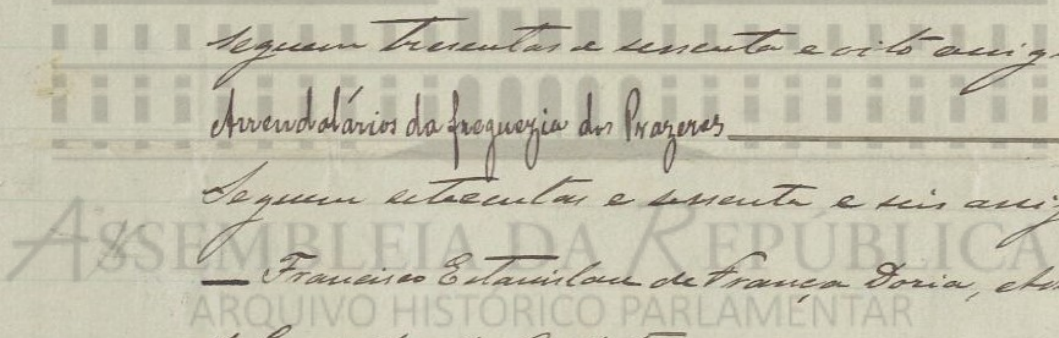 seguem tresentas e sessenta e oito assig
Arrendatários da freguezia dos Prazeres
Seguem setecentas e sessenta e seis assig
— Francisco Estanislau de França Doria,
ASSEMBLEIA DA REPÚBLICA
ARQUIVO HISTÓRICO PARLAMENTAR